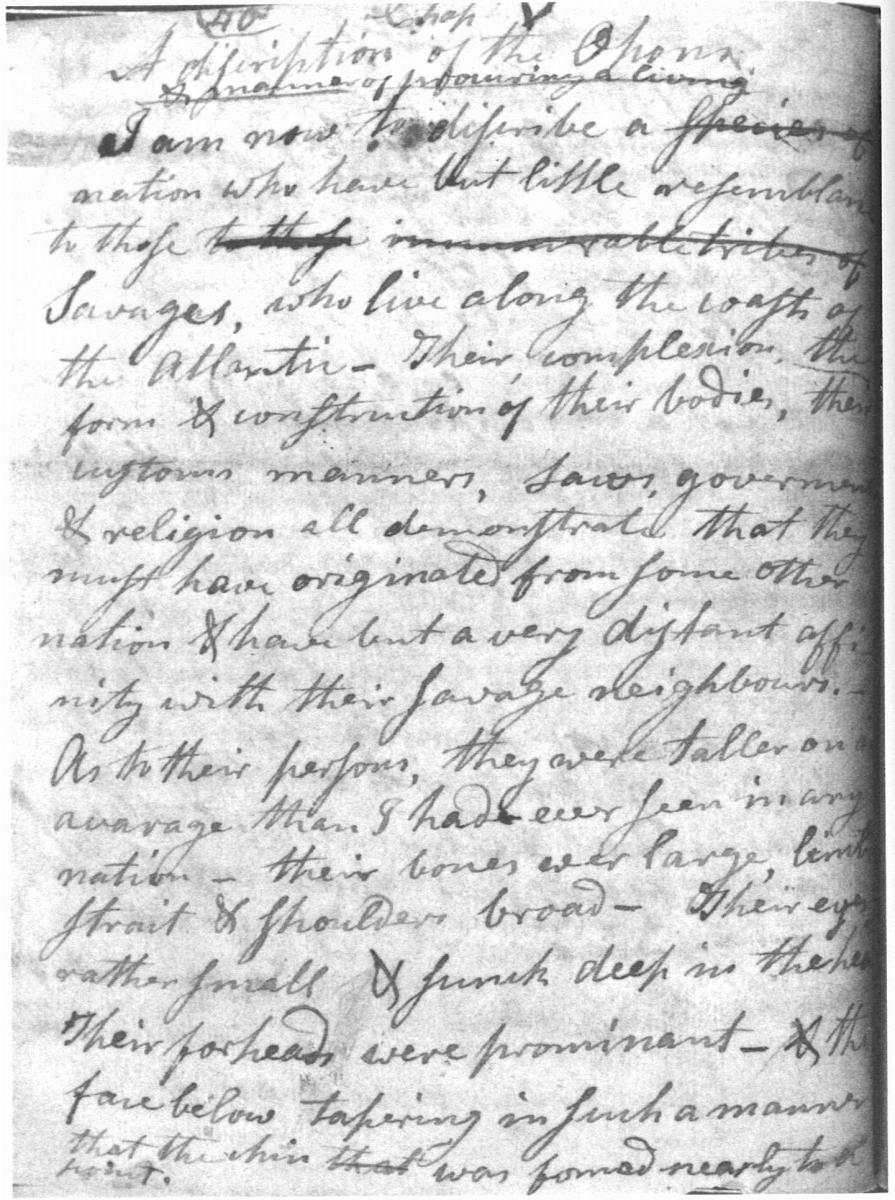 40 Chap V
A discription of the Ohons
& manner of procuring a living
I am now to discribe a species of
nation who have but little resemblan
to those to those innumerable tribes of
Savages, who live along the coasts of
the Atlantic – Their complexion, the
form & construction of their bodies, their
customs manners, Laws, goverment
& religion all demonstrate that they
must have originated from some other
nation & have but a very distant affi-
nity with their savage neighbours. –
As to their persons, they were taller on a
avarage than I had ever seen in any
nation – their bones wer large, limbs
strait & shoulders broad – Their eyes
rather small & sunck deep in the hea
Their forheads were prominant – & the
face below tapering in such a manner
that the chin that was fomed nearly to a
point.